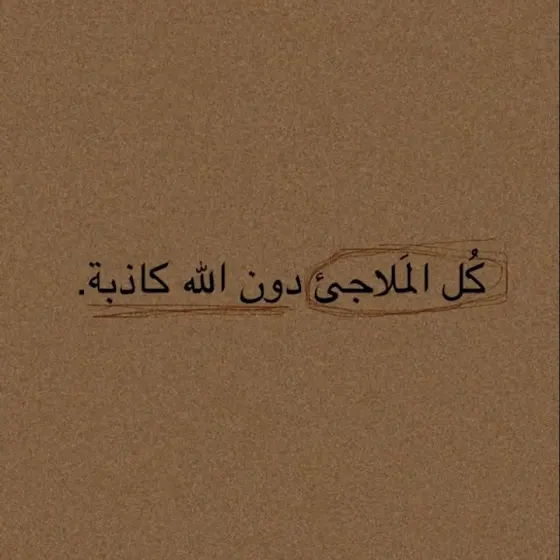 كُل المَلاجئ دون الله كاذبة.